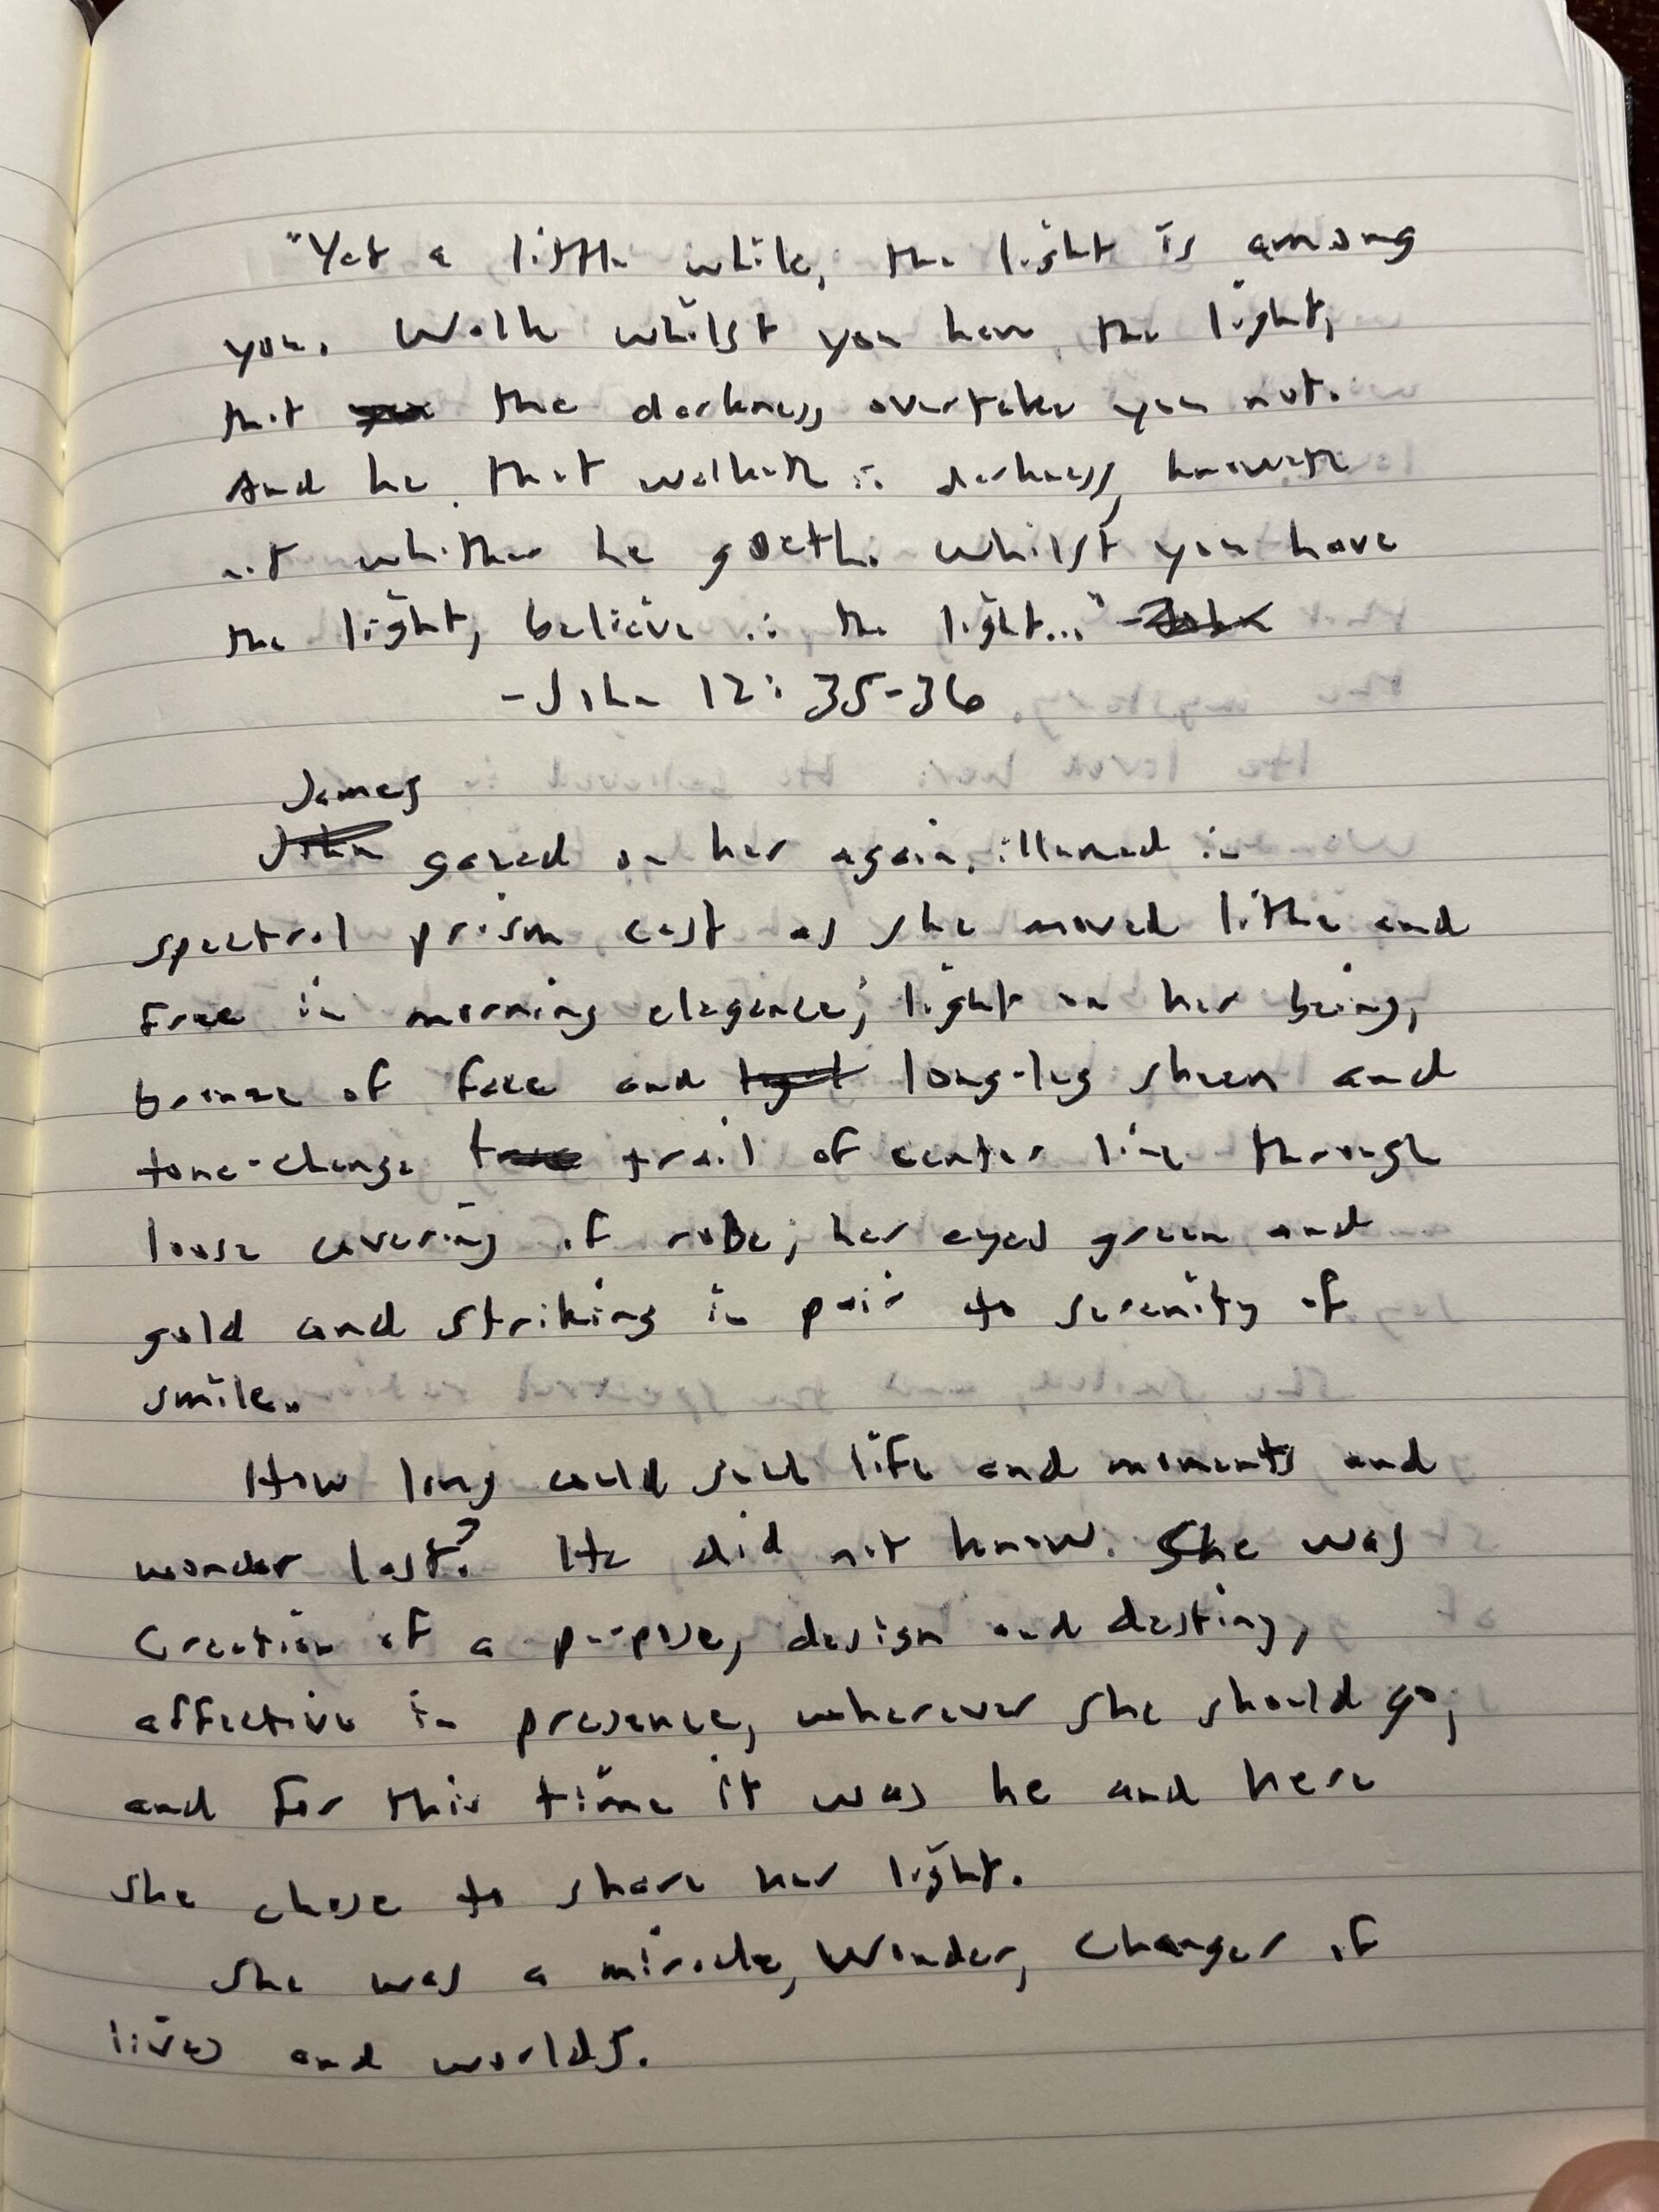 "Yet a little while, the light is among
you. Walk whilst you have the light,
that the darkness overtakes you not.
And he that walketh in darkness, knoweth
not whither he goeth. Whilst you have
the light, believe in the light..." -John
-John 12:35-36
James
John gazed on her again, illumed in
spectral prism, cast as she moved lithe and
free in morning elegance; light on her being,
bronze of face and long-leg sheen and
tone-change trail of center line through
loose covering of robe; her eyes green and
gold and striking in pair to serenity of
smile.
How long could such life and moments and
wonder last? He did not know. She was
Creation of a purpose, design and destiny,
affective in presence, wherever she should go;
and for this time it was he and here
she chose to share her light.
She was a miracle, Wonder, Changer of
lives and worlds.